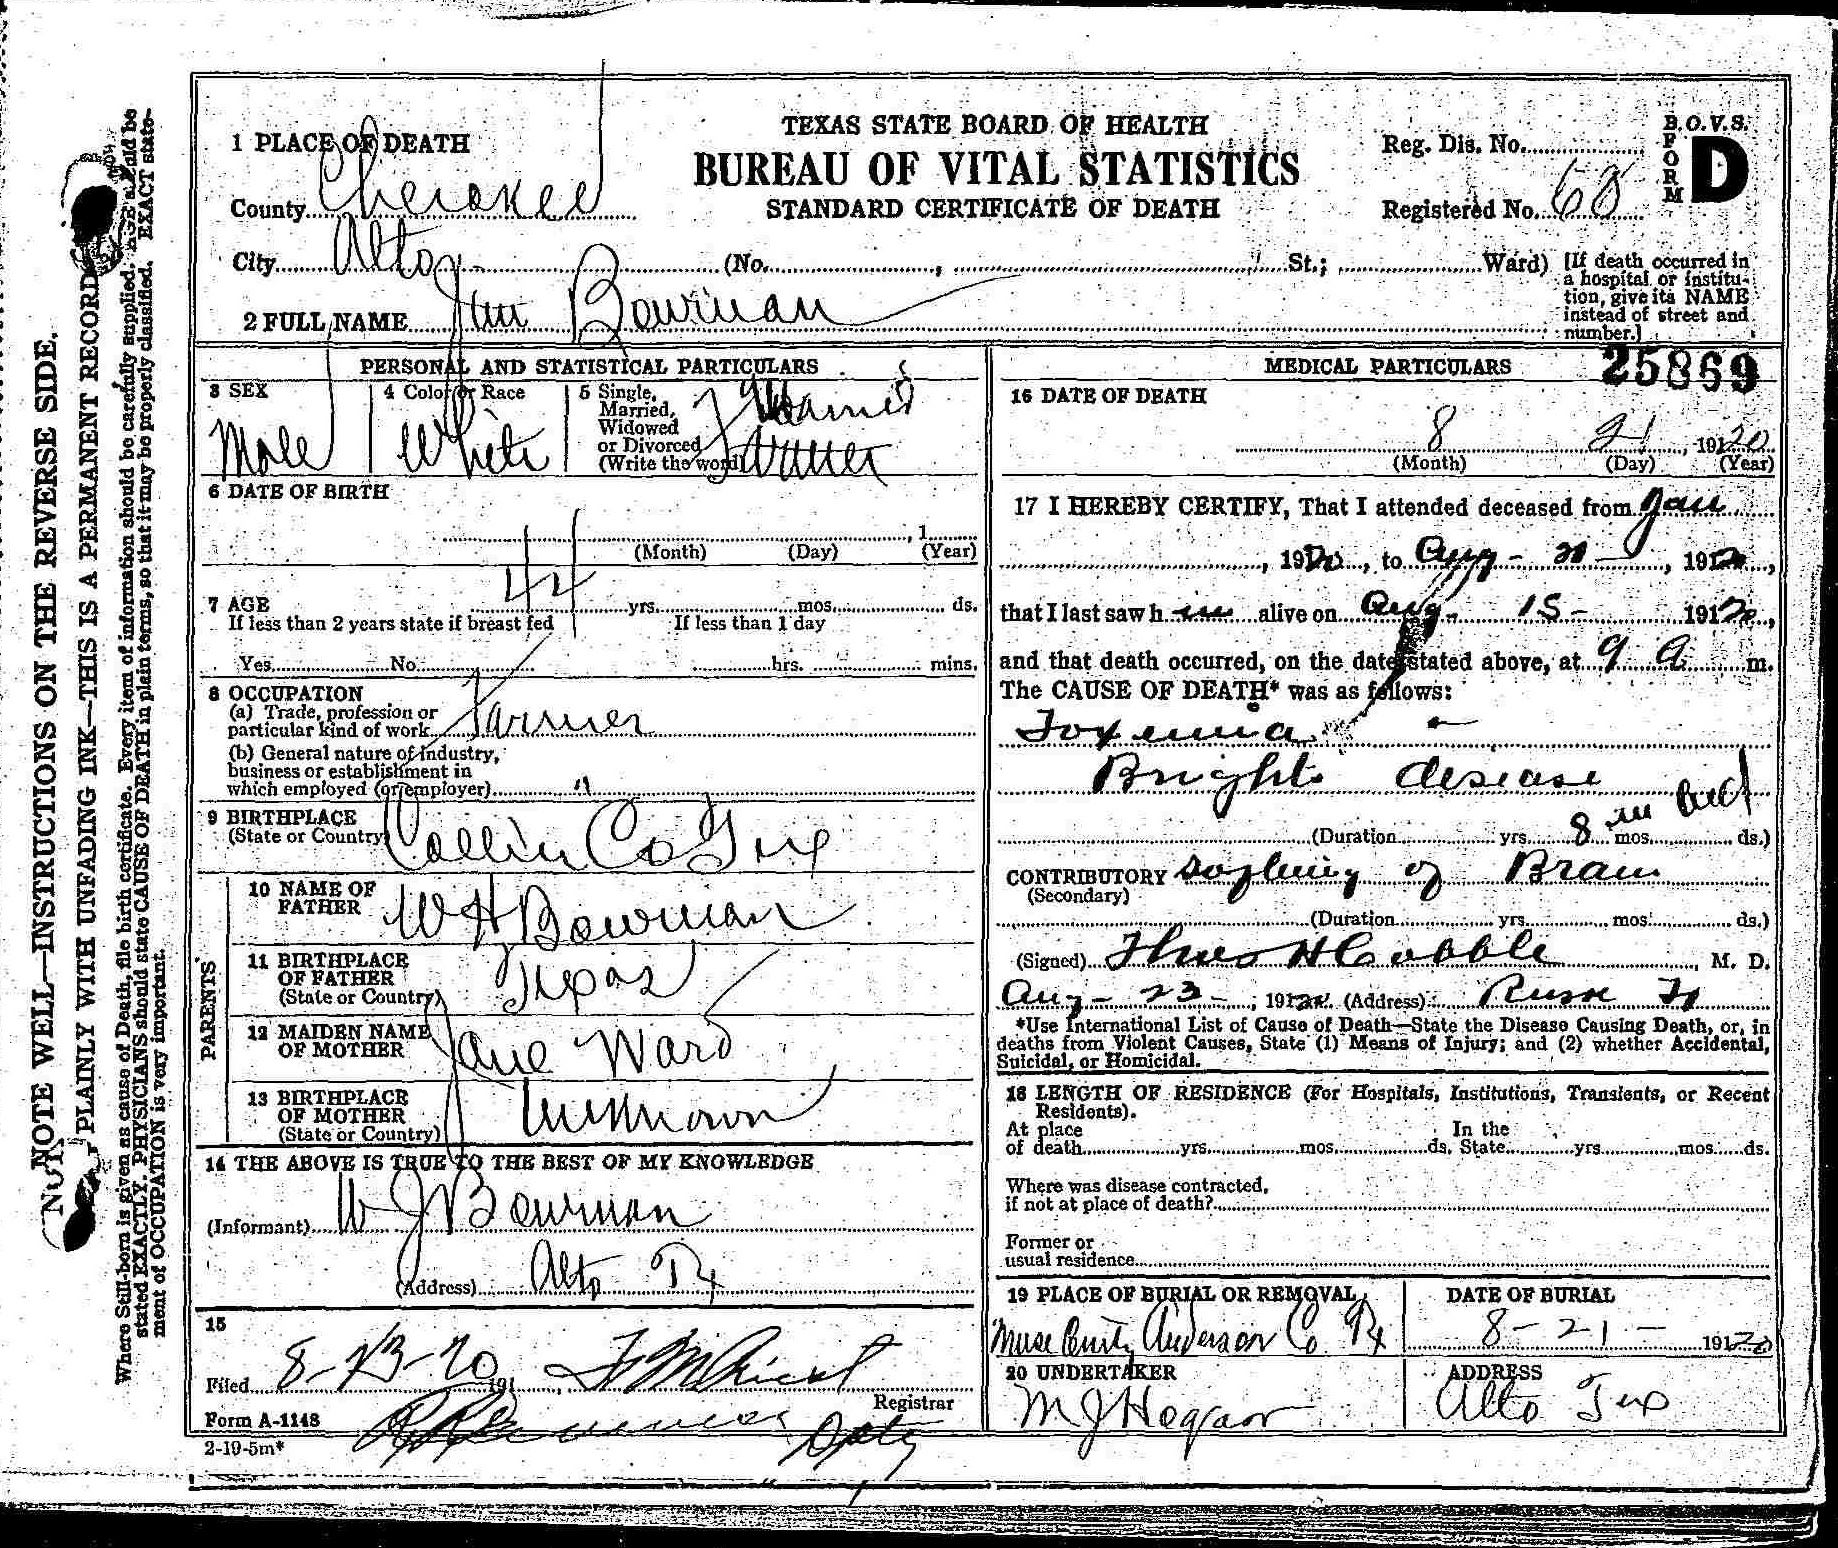 TEXAS STATE BOARD OF HEALTH
BUREAU OF VITAL STATISTICS
STANDARD CERTIFICATE OF DEATH
B.O.V.S.
FORM D
Reg. Dis. No.
Registered No. 68
1 PLACE OF DEATH
County Cherokee
City Alto (No. , St.; Ward)
[If death occurred in
a hospital or institu-
tion, give its NAME
instead of street and
number.]
2 FULL NAME Jim Bowman
PERSONAL AND STATISTICAL PARTICULARS
3 SEX
Male
4 Color or Race
White
5 Single,
Married,
Widowed
or Divorced
(Write the word)
Married
6 DATE OF BIRTH
, 1
(Month) (Day) (Year)
7 AGE 44 yrs. mos. ds.
If less than 2 years state if breast fed If less than 1 day
Yes No hrs. mins.
8 OCCUPATION
(a) Trade, profession or
particular kind of work Farmer
(b) General nature of industry,
business or establishment in
which employed (or employer) "
9 BIRTHPLACE
(State or Country) Collin Co Tex
PARENTS
10 NAME OF
FATHER W H Bowman
11 BIRTHPLACE
OF FATHER
(State or Country) Texas
12 MAIDEN NAME
OF MOTHER Jane Ward
13 BIRTHPLACE
OF MOTHER
(State or Country) Unknown
14 THE ABOVE IS TRUE TO THE BEST OF MY KNOWLEDGE
(Informant) W J Bowman
(Address) Alto Tx
15
Filed 8-23-20 191 ,
Registrar
Form A-1148
Dpty
2-19-5m*
MEDICAL PARTICULARS
25869
16 DATE OF DEATH
8 21 , 1920
(Month) (Day) (Year)
17 I HEREBY CERTIFY, That I attended deceased from Jan
, 1920, to Aug - 21 - , 1920,
that I last saw him alive on Aug - 15 - 1920,
and that death occurred, on the date stated above, at 9 A m.
The CAUSE OF DEATH* was as follows:
Toxemia
Brights disease
in bed
(Duration yrs. 8 mos. ds.)
CONTRIBUTORY of Brain
(Secondary)
(Duration yrs. mos. ds.)
(Signed) Thos H Cobble , M. D.
Aug - 23 - , 1920 (Address) Rusk Tx
*Use International List of Cause of Death—State the Disease Causing Death, or, in
deaths from Violent Causes, State (1) Means of Injury; and (2) whether Accidental,
Suicidal, or Homicidal.
18 LENGTH OF RESIDENCE (For Hospitals, Institutions, Transients, or Recent
Residents).
At place In the
of death yrs. mos. ds. State yrs. mos. ds.
Where was disease contracted,
if not at place of death?
Former or
usual residence
19 PLACE OF BURIAL OR REMOVAL
Muse Anderson Co Tx
DATE OF BURIAL
8-21- 1920
20 UNDERTAKER
M J Hogan
ADDRESS
Alto Tex
NOTE WELL—INSTRUCTIONS ON THE REVERSE SIDE.
PLAINLY WITH UNFADING INK—THIS IS A PERMANENT RECORD
Where Still-born is given as cause of Death, file birth certificate. Every item of information should be carefully supplied. AGE should be
stated EXACTLY. PHYSICIANS should state CAUSE OF DEATH in plain terms, so that it may be properly classified. EXACT state-
ment of OCCUPATION is very important.